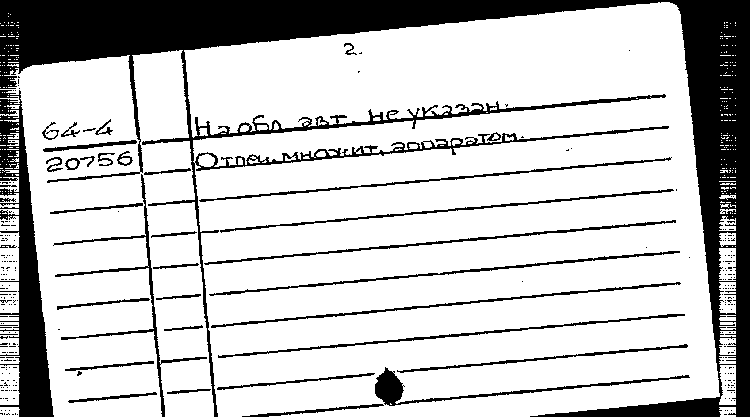 2.
64-4 На обл. авт. не указан.
20756 Отпеч. множит. аппаратом.